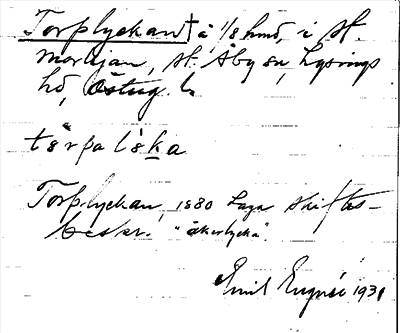 Torplyckan † å 1/8 hmd, i St.
morujan, St. Åby sn, Lysings
hd, Östug. l.
tŏrpalÿka
Torplyckan, 1880 Laga skiftes-
beskr. "åkerlycka".
Emil Engnér 1931